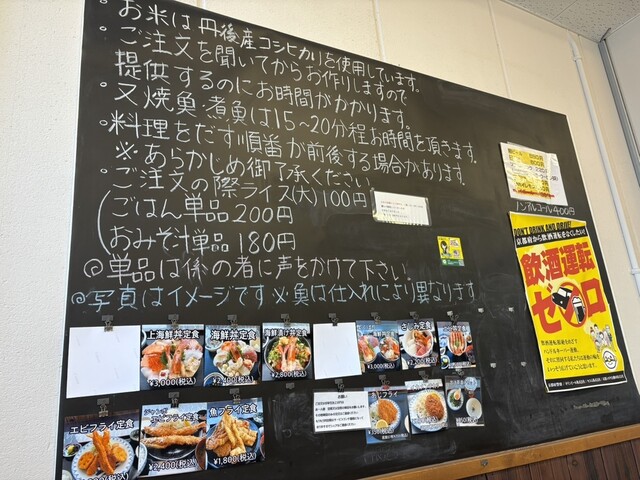 ・お米は丹後産コシヒカリを使用しています。
・ご注文を聞いてからお作りしますので
提供するのにお時間がかかります。
・又焼魚・煮魚は15～20分程お時間を頂きます。
・料理をだす順番が前後する場合があります。
※あらかじめ御了承ください。
・ご注文の際ライス(大)100円
ごはん単品200円
おみそ汁単品180円
◎単品は係の者に声をかけて下さい。
◎写真はイメージです※魚は仕入れにより異なります
ノンアルコール400円
DON'T DRINK AND DRIVE!
京都府から飲酒運転をなくしたい!
飲酒運転
ゼロ
上海鮮丼定食
¥3,000(税込)
海鮮丼定食
¥2,400(税込)
海鮮漬け丼定食
¥2,800(税込)
¥3,000(税込)
さしみ定食
¥2,200(税込)
お願い
エビフライ定食
¥2,400(税込)
魚フライ定食
¥1,800(税込)
あじフライ